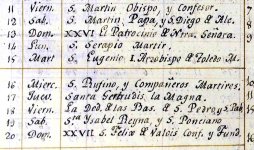 11 Viern. S. Martin Obispo, y Confesor.
12 Sab. S. Martin, Papa, y S. Diego de Alc.
13 Dom. XXVI El Patrocinio de Ntra. Señora.
14 Lun. S. Serapio Martir.
15 Mart. S. Eugenio I. Arzobispo de Toledo M.
16 Mierc. S. Rufino, y Compañeros Martires.
17 Juev. Santa Gertrudis la Magna.
18 Viern. La Ded. de las Bas. de S. Pedro, y S. Pab
19 Sab. Sta. Isabel Reyna, y S. Ponciano
20 Dom. XXVII S. Felix de Valois Conf. y Fund.